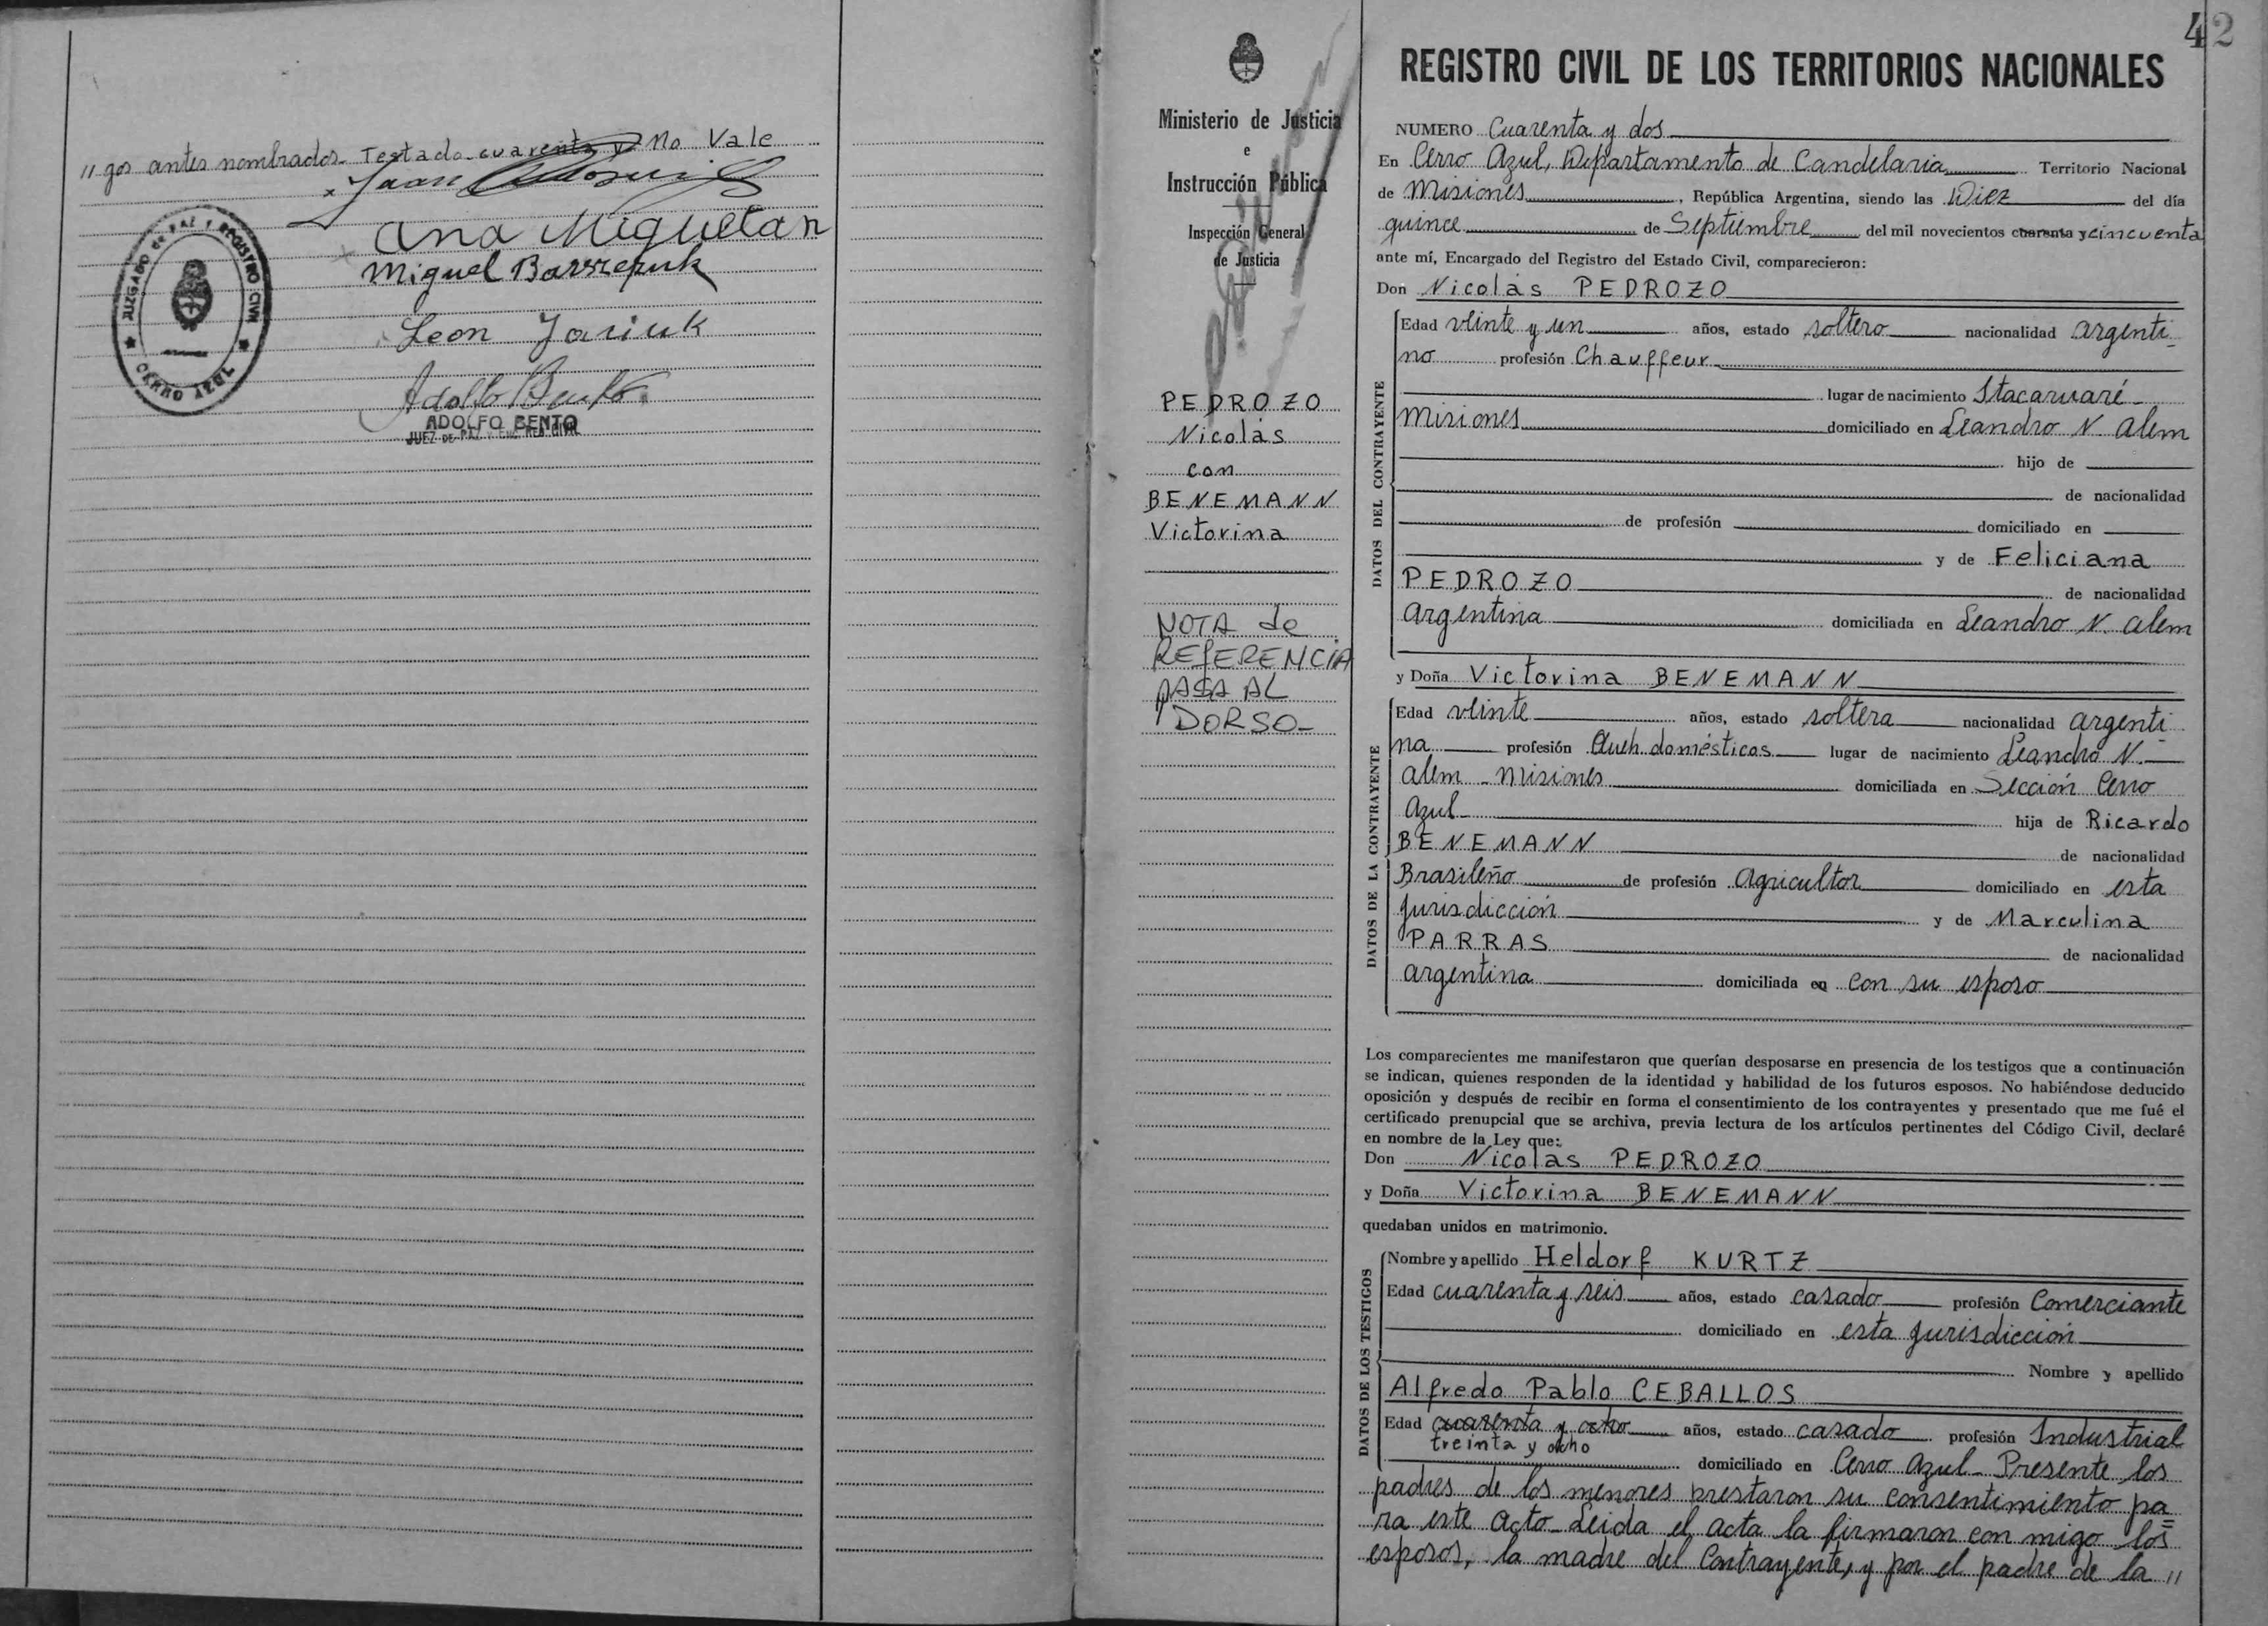 // gos antes nombrados. Testado cuarenta y No Vale
Juan
Ana Miguetan
Miguel
Leon Jasiuk
JUZGADO de PAZ Y REGISTRO CIVIL
CERRO AZUL
Adolfo Bento
ADOLFO BENTO
JUEZ DE PAZ Y ENC. REG. CIVIL
Ministerio de Justicia
e
Instrucción Pública
Inspección General
de Justicia
PEDROZO
Nicolás
con
BENEMANN
Victorina
NOTA de
REFERENCIA
PASA AL
DORSO-
42
REGISTRO CIVIL DE LOS TERRITORIOS NACIONALES
NUMERO Cuarenta y dos
En Cerro Azul, Departamento de Candelaria Territorio Nacional
de Misiones, República Argentina, siendo las Diez del día
quince de Septiembre del mil novecientos cuarenta y cincuenta
ante mí, Encargado del Registro del Estado Civil, comparecieron:
Don Nicolás PEDROZO
DATOS DEL CONTRAYENTE
Edad veinte y un años, estado soltero nacionalidad argenti-
no profesión Chauffeur
lugar de nacimiento Itacaruaré-
Misiones domiciliado en Leandro N. Alem
hijo de
de nacionalidad
de profesión domiciliado en
y de Feliciana
PEDROZO de nacionalidad
argentina domiciliada en Leandro N. Alem
y Doña Victorina BENEMANN
DATOS DE LA CONTRAYENTE
Edad veinte años, estado soltera nacionalidad argenti-
na profesión Queh. domésticos lugar de nacimiento Leandro N.
Alem - Misiones domiciliada en Sección Cerro
Azul hija de Ricardo
BENEMANN de nacionalidad
Brasileño de profesión Agricultor domiciliado en esta
jurisdicción y de Marculina
PARRAS de nacionalidad
argentina domiciliada en con su esposo
Los comparecientes me manifestaron que querían desposarse en presencia de los testigos que a continuación
se indican, quienes responden de la identidad y habilidad de los futuros esposos. No habiéndose deducido
oposición y después de recibir en forma el consentimiento de los contrayentes y presentado que me fué el
certificado prenupcial que se archiva, previa lectura de los artículos pertinentes del Código Civil, declaré
en nombre de la Ley que:
Don Nicolas PEDROZO
y Doña Victorina BENEMANN
quedaban unidos en matrimonio.
DATOS DE LOS TESTIGOS
Nombre y apellido Heldorf KURTZ
Edad cuarenta y seis años, estado casado profesión Comerciante
domiciliado en esta jurisdicción
Nombre y apellido
Alfredo Pablo CEBALLOS
Edad cuarenta y ocho años, estado casado profesión Industrial
treinta y ocho
domiciliado en Cerro Azul- Presente los
padres de los menores prestaron su consentimiento pa=
ra este acto- Leida el acta la firmaron con migo los
esposos, la madre del contrayente, y por el padre de la //